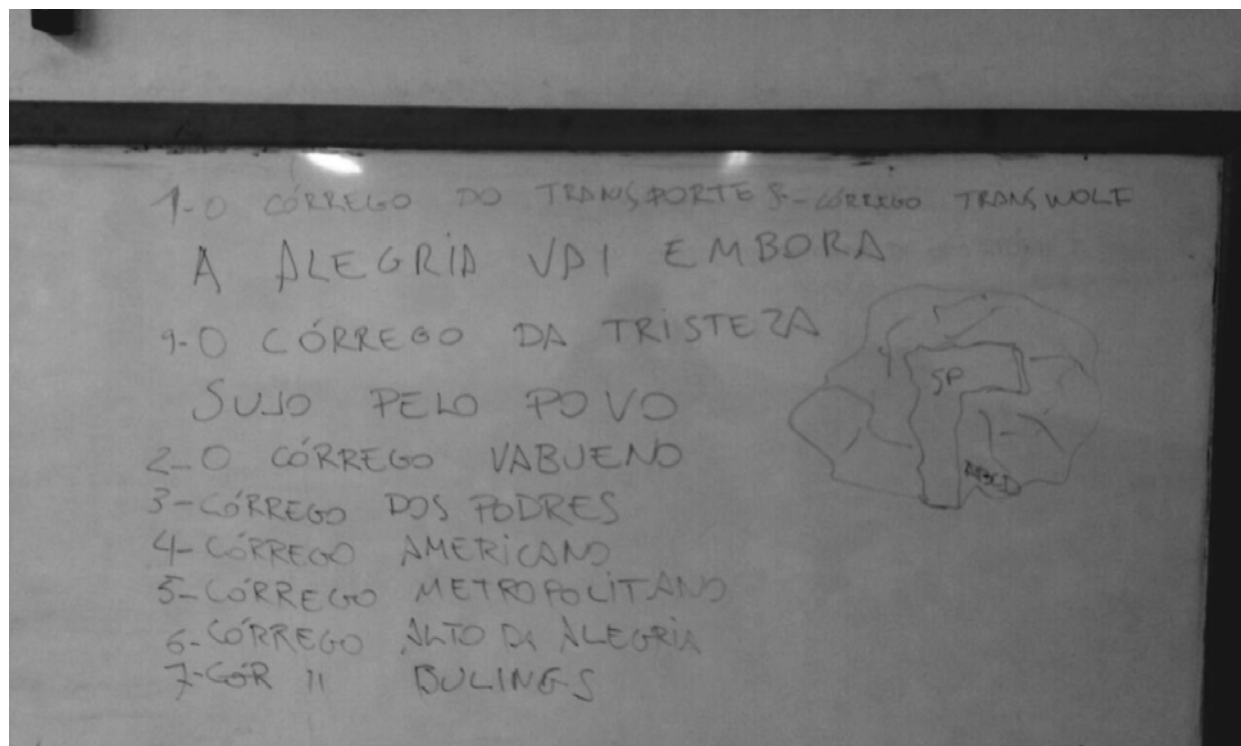 1-O CÓRREGO DO TRANSPORTE 8-CÓRREGO TRANSWOLF
A ALEGRIA VAI EMBORA
9-O CÓRREGO DA TRISTEZA
SUJO PELO POVO
2-O CÓRREGO VABUENO
3-CÓRREGO DOS PODRES
4-CÓRREGO AMERICANO
5-CÓRREGO METROPOLITANO
6-CÓRREGO ALTO DA ALEGRIA
7-CÓR 11 BULINGS
SP
ABCD